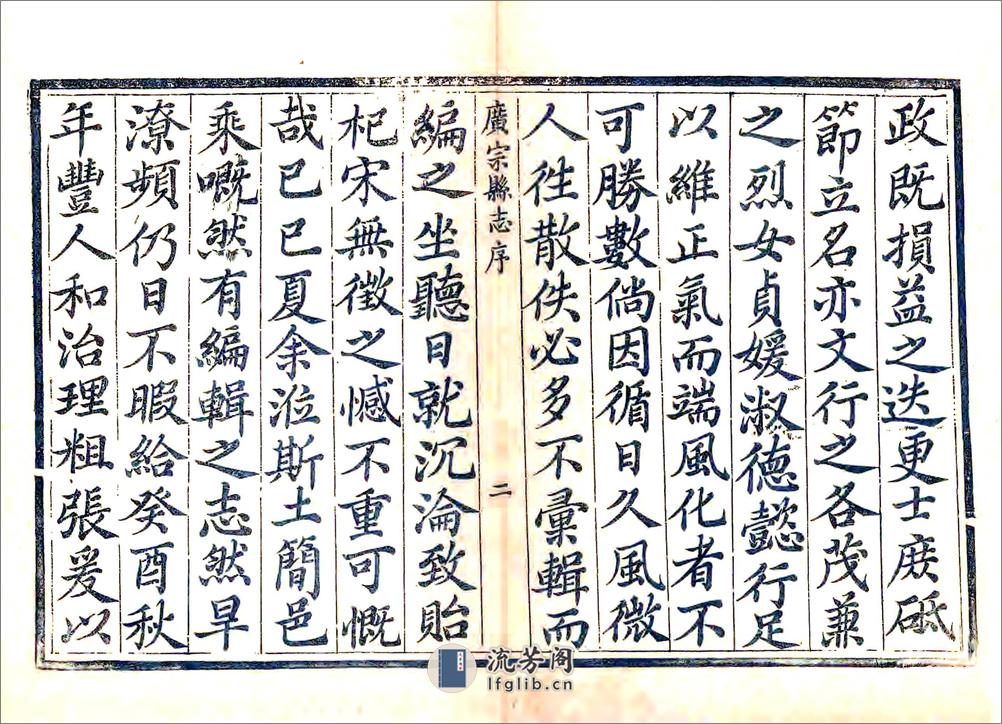 政既損益之迭更士庶砥
節立名亦文行之各茂兼
之烈女貞媛淑德懿行足
以維正氣而端風化者不
可勝數倘因循日久風微
人徃散佚必多不彙輯而
廣宗縣志序
二
編之坐聽日就沉淪致貽
杞宋無徵之憾不重可慨
哉己巳夏余涖斯土簡邑
乘嘅然有編輯之志然早
潦頻仍日不暇給癸酉秋
年豐人和治理粗張爰以
流芳阁
lfglib.cn